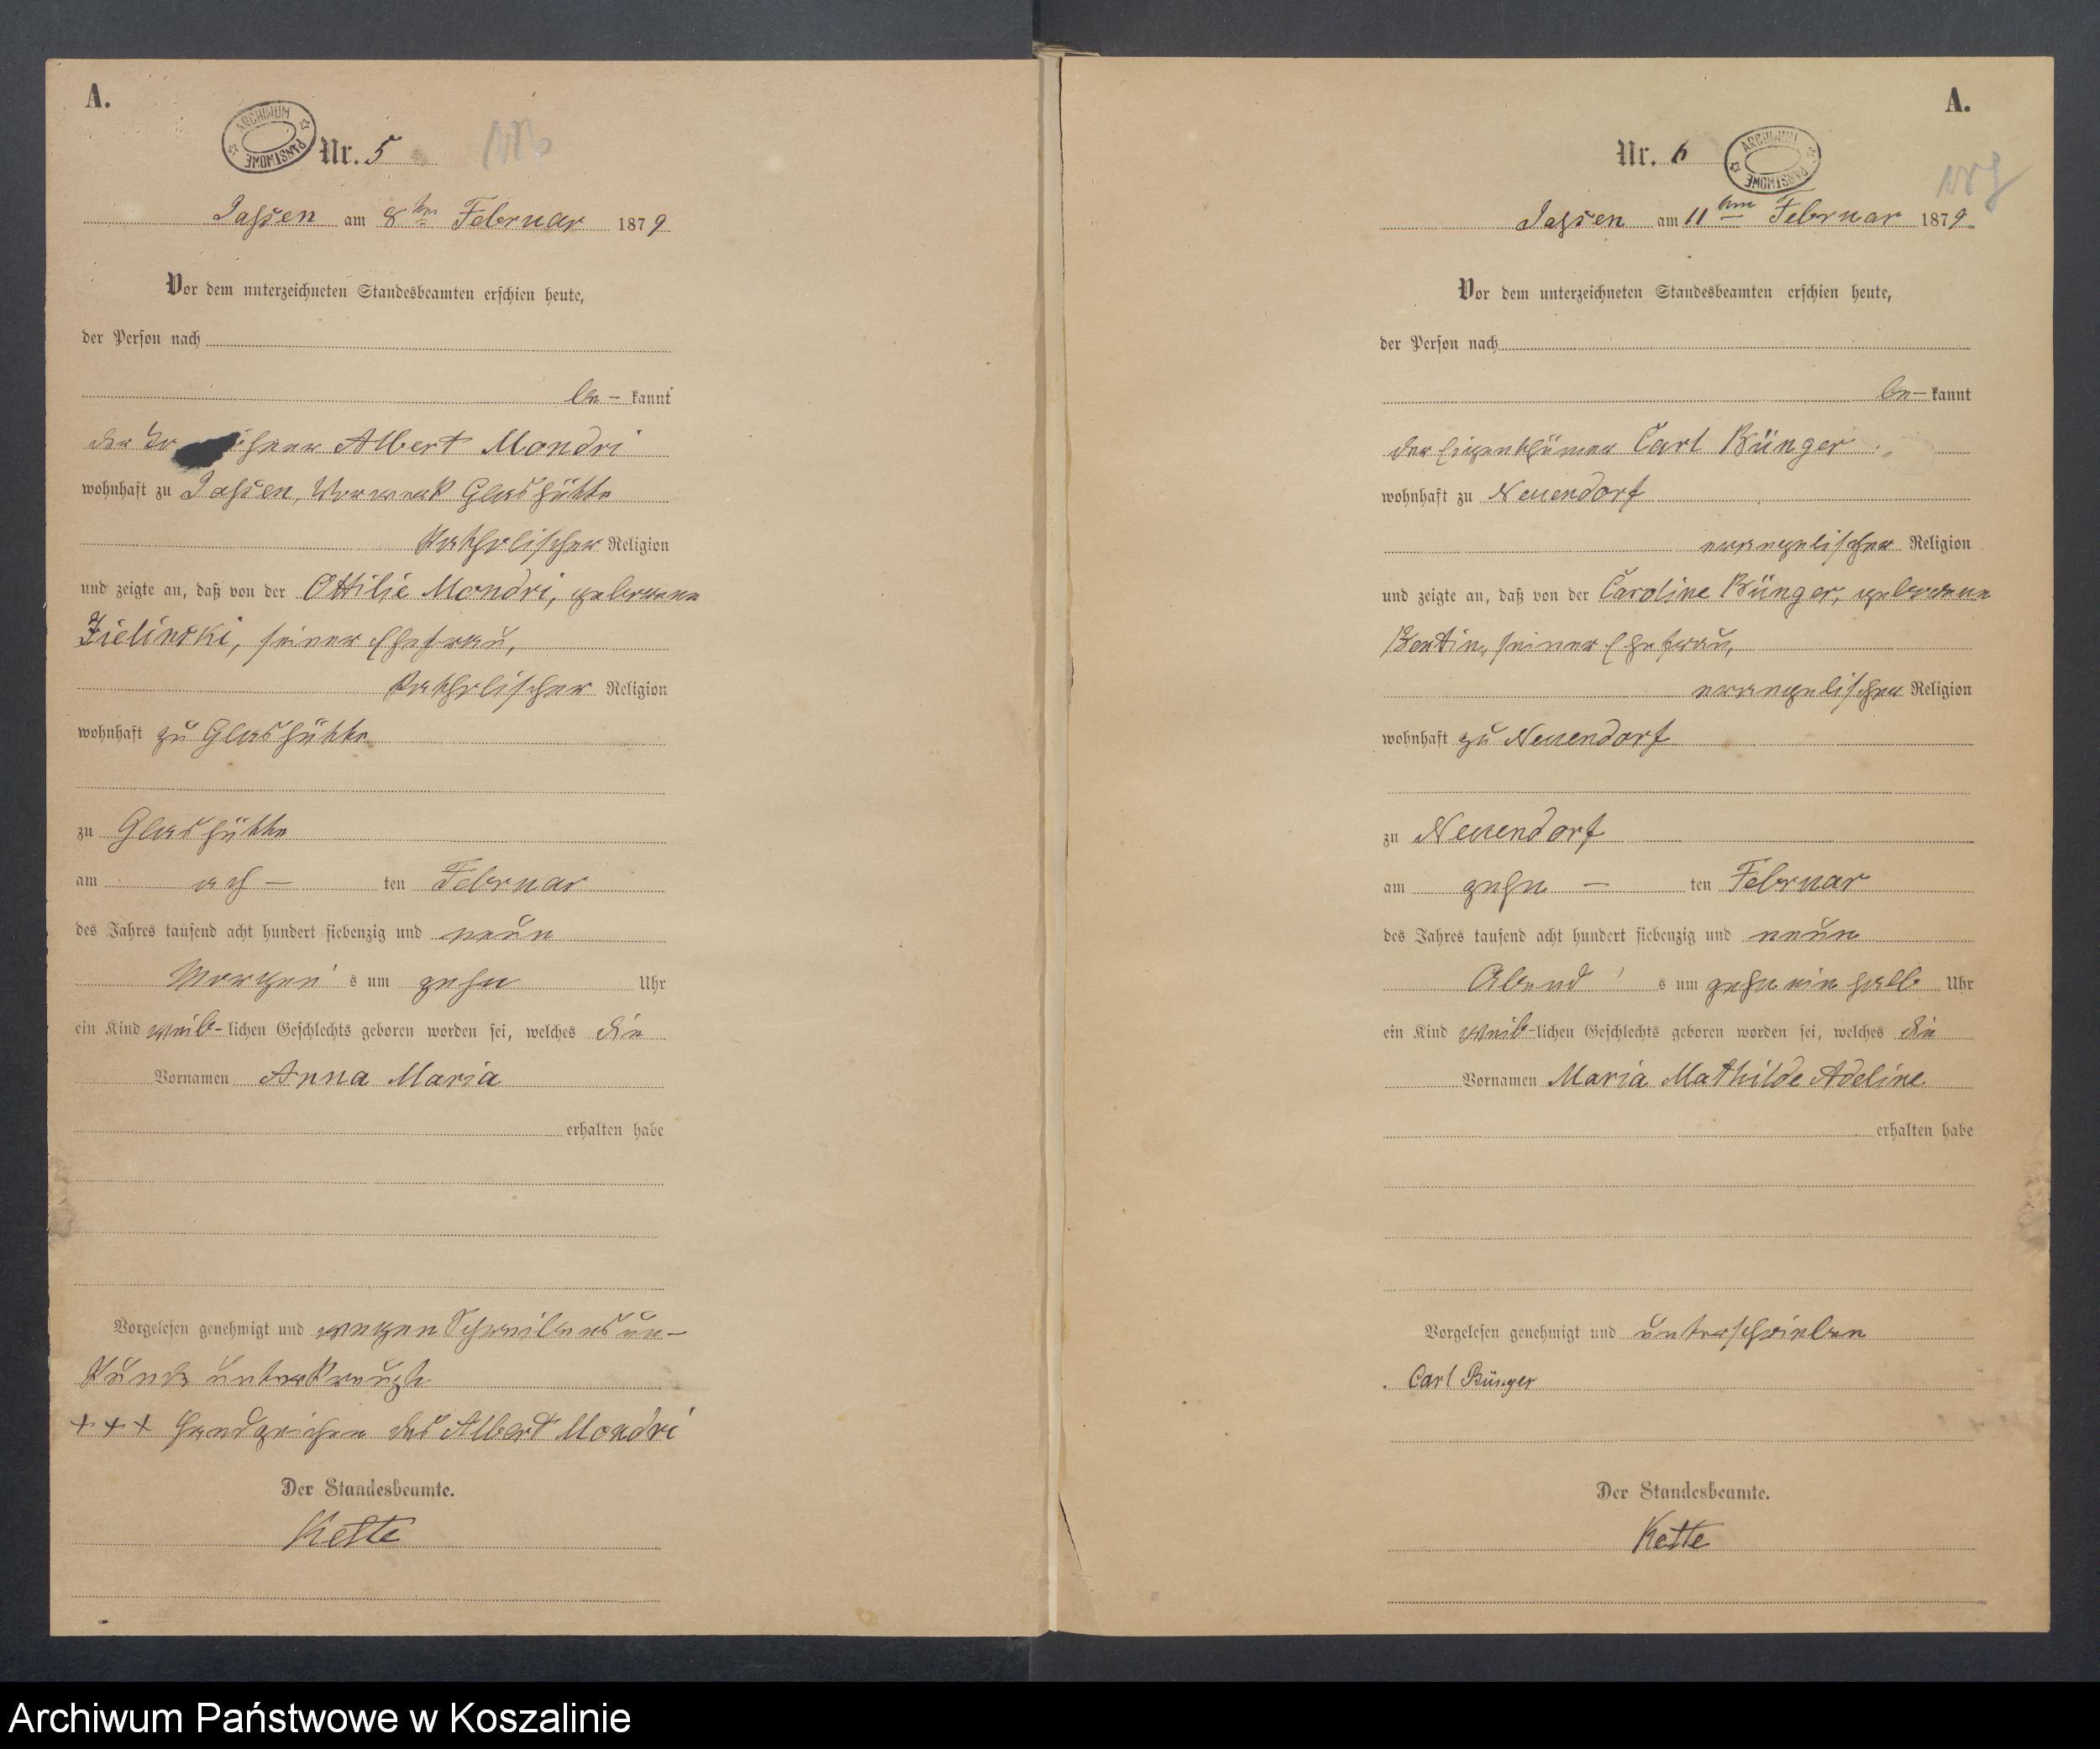 A.
ARCHIWUM PAŃSTWOWE
Nr. 5
Jassen am 8ten Februar 1879
Vor dem unterzeichneten Standesbeamten erschien heute,
der Person nach
be- kannt
der Albert Mondri
wohnhaft zu Jassen, Vorwerk Glashütte
katholischer Religion
und zeigte an, daß von der Ottilie Mondri, geborene
Zielinski, seiner Ehefrau,
katholischer Religion
wohnhaft zu Glashütte
zu Glashütte
am ach- ten Februar
des Jahres tausend acht hundert siebenzig und neun
Morgen s um zehn Uhr
ein Kind weib- lichen Geschlechts geboren worden sei, welches die
Vornamen Anna Maria
erhalten habe
Vorgelesen genehmigt und wegen Schreibensun-
kunde unterkreuzt
+++ Handzeichen des Albert Mondri
Der Standesbeamte.
Kette
A.
Nr. 6
ARCHIWUM PAŃSTWOWE
Jassen am 11ten Februar 1879.
Vor dem unterzeichneten Standesbeamten erschien heute,
der Person nach
be- kannt
der Eigenthümer Carl Bünger
wohnhaft zu Neuendorf
evangelischer Religion
und zeigte an, daß von der Caroline Bünger, geborene
seiner Ehefrau,
evangelischer Religion
wohnhaft zu Neuendorf
zu Neuendorf
am zehn - ten Februar
des Jahres tausend acht hundert siebenzig und neun
Abend s um zehn ein halb Uhr
ein Kind weib-lichen Geschlechts geboren worden sei, welches die
Vornamen Maria Mathilde Adeline
erhalten habe
Vorgelesen genehmigt und unterschrieben
Carl Bünger
Der Standesbeamte.
Kette
Archiwum Państwowe w Koszalinie